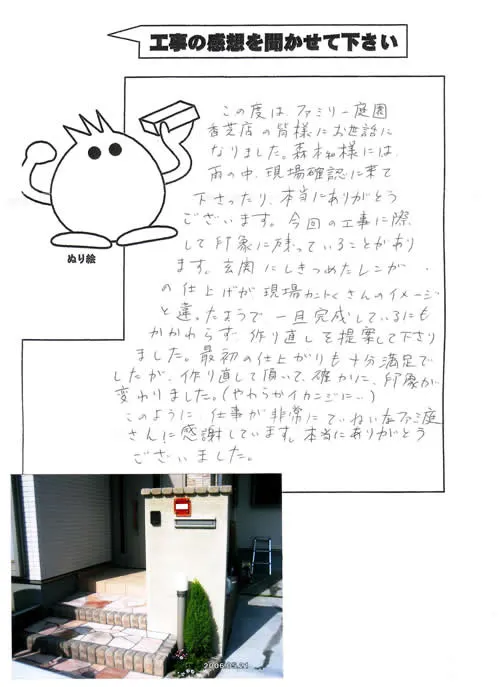 工事の感想を聞かせて下さい
この度は、ファミリー庭園
香芝店の皆様にお世話に
なりました。森本様には、
雨の中、現場確認に来て
下さったり、本当にありがとう
ございます。今回の工事に際
して印象に残っていることがあり
ます。玄関にしきつめたレンガ
の仕上げが現場かんとくさんのイメージ
と違ったようで一旦完成しているにも
かかわらず作り直しを提案して下さり
ました。最初の仕上がりも十分満足で
したが、作り直して頂いて、確かに、印象が
変わりました。(やわらかイカンジに‥)
このように仕事が非常にていねいなファミ庭
さんに感謝しています。本当にありがとう
ございました。
ぬり絵
2006.05.21